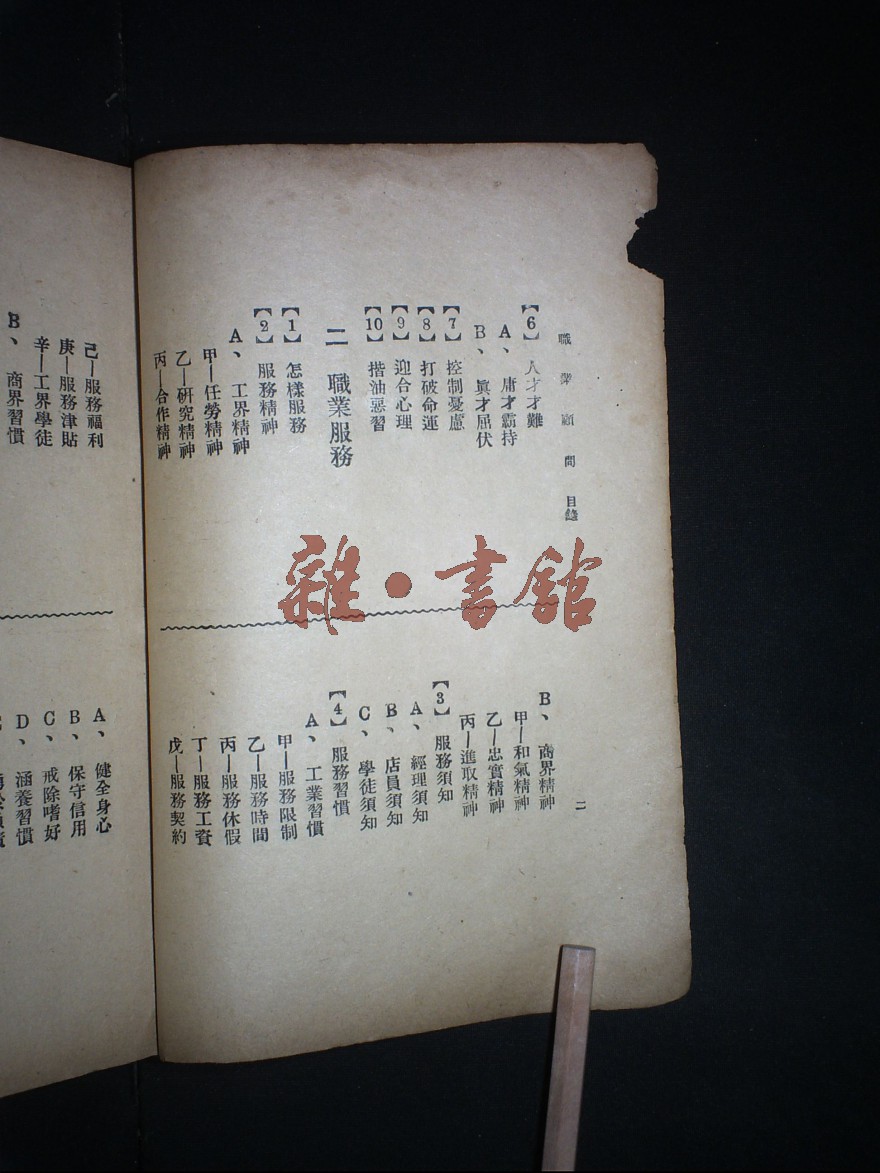 職業顧問 目錄
二
【6】人才才難
A、庸才霸持
B、眞才屈伏
【7】控制憂慮
【8】打破命運
【9】迎合心理
【10】揩油惡習
二 職業服務
【1】怎樣服務
【2】服務精神
A、工界精神
甲—任勞精神
乙—研究精神
丙—合作精神
B、商界精神
甲—和氣精神
乙—忠實精神
丙—進取精神
【3】服務須知
A、經理須知
B、店員須知
C、學徒須知
【4】服務習慣
A、工業習慣
甲—服務限制
乙—服務時間
丙—服務休假
丁—服務工資
戊—服務契約
己—服務福利
庚—服務津貼
辛—工界學徒
B、商界習慣
A、健全身心
B、保守信用
C、戒除嗜好
D、涵養習慣
雜·書館